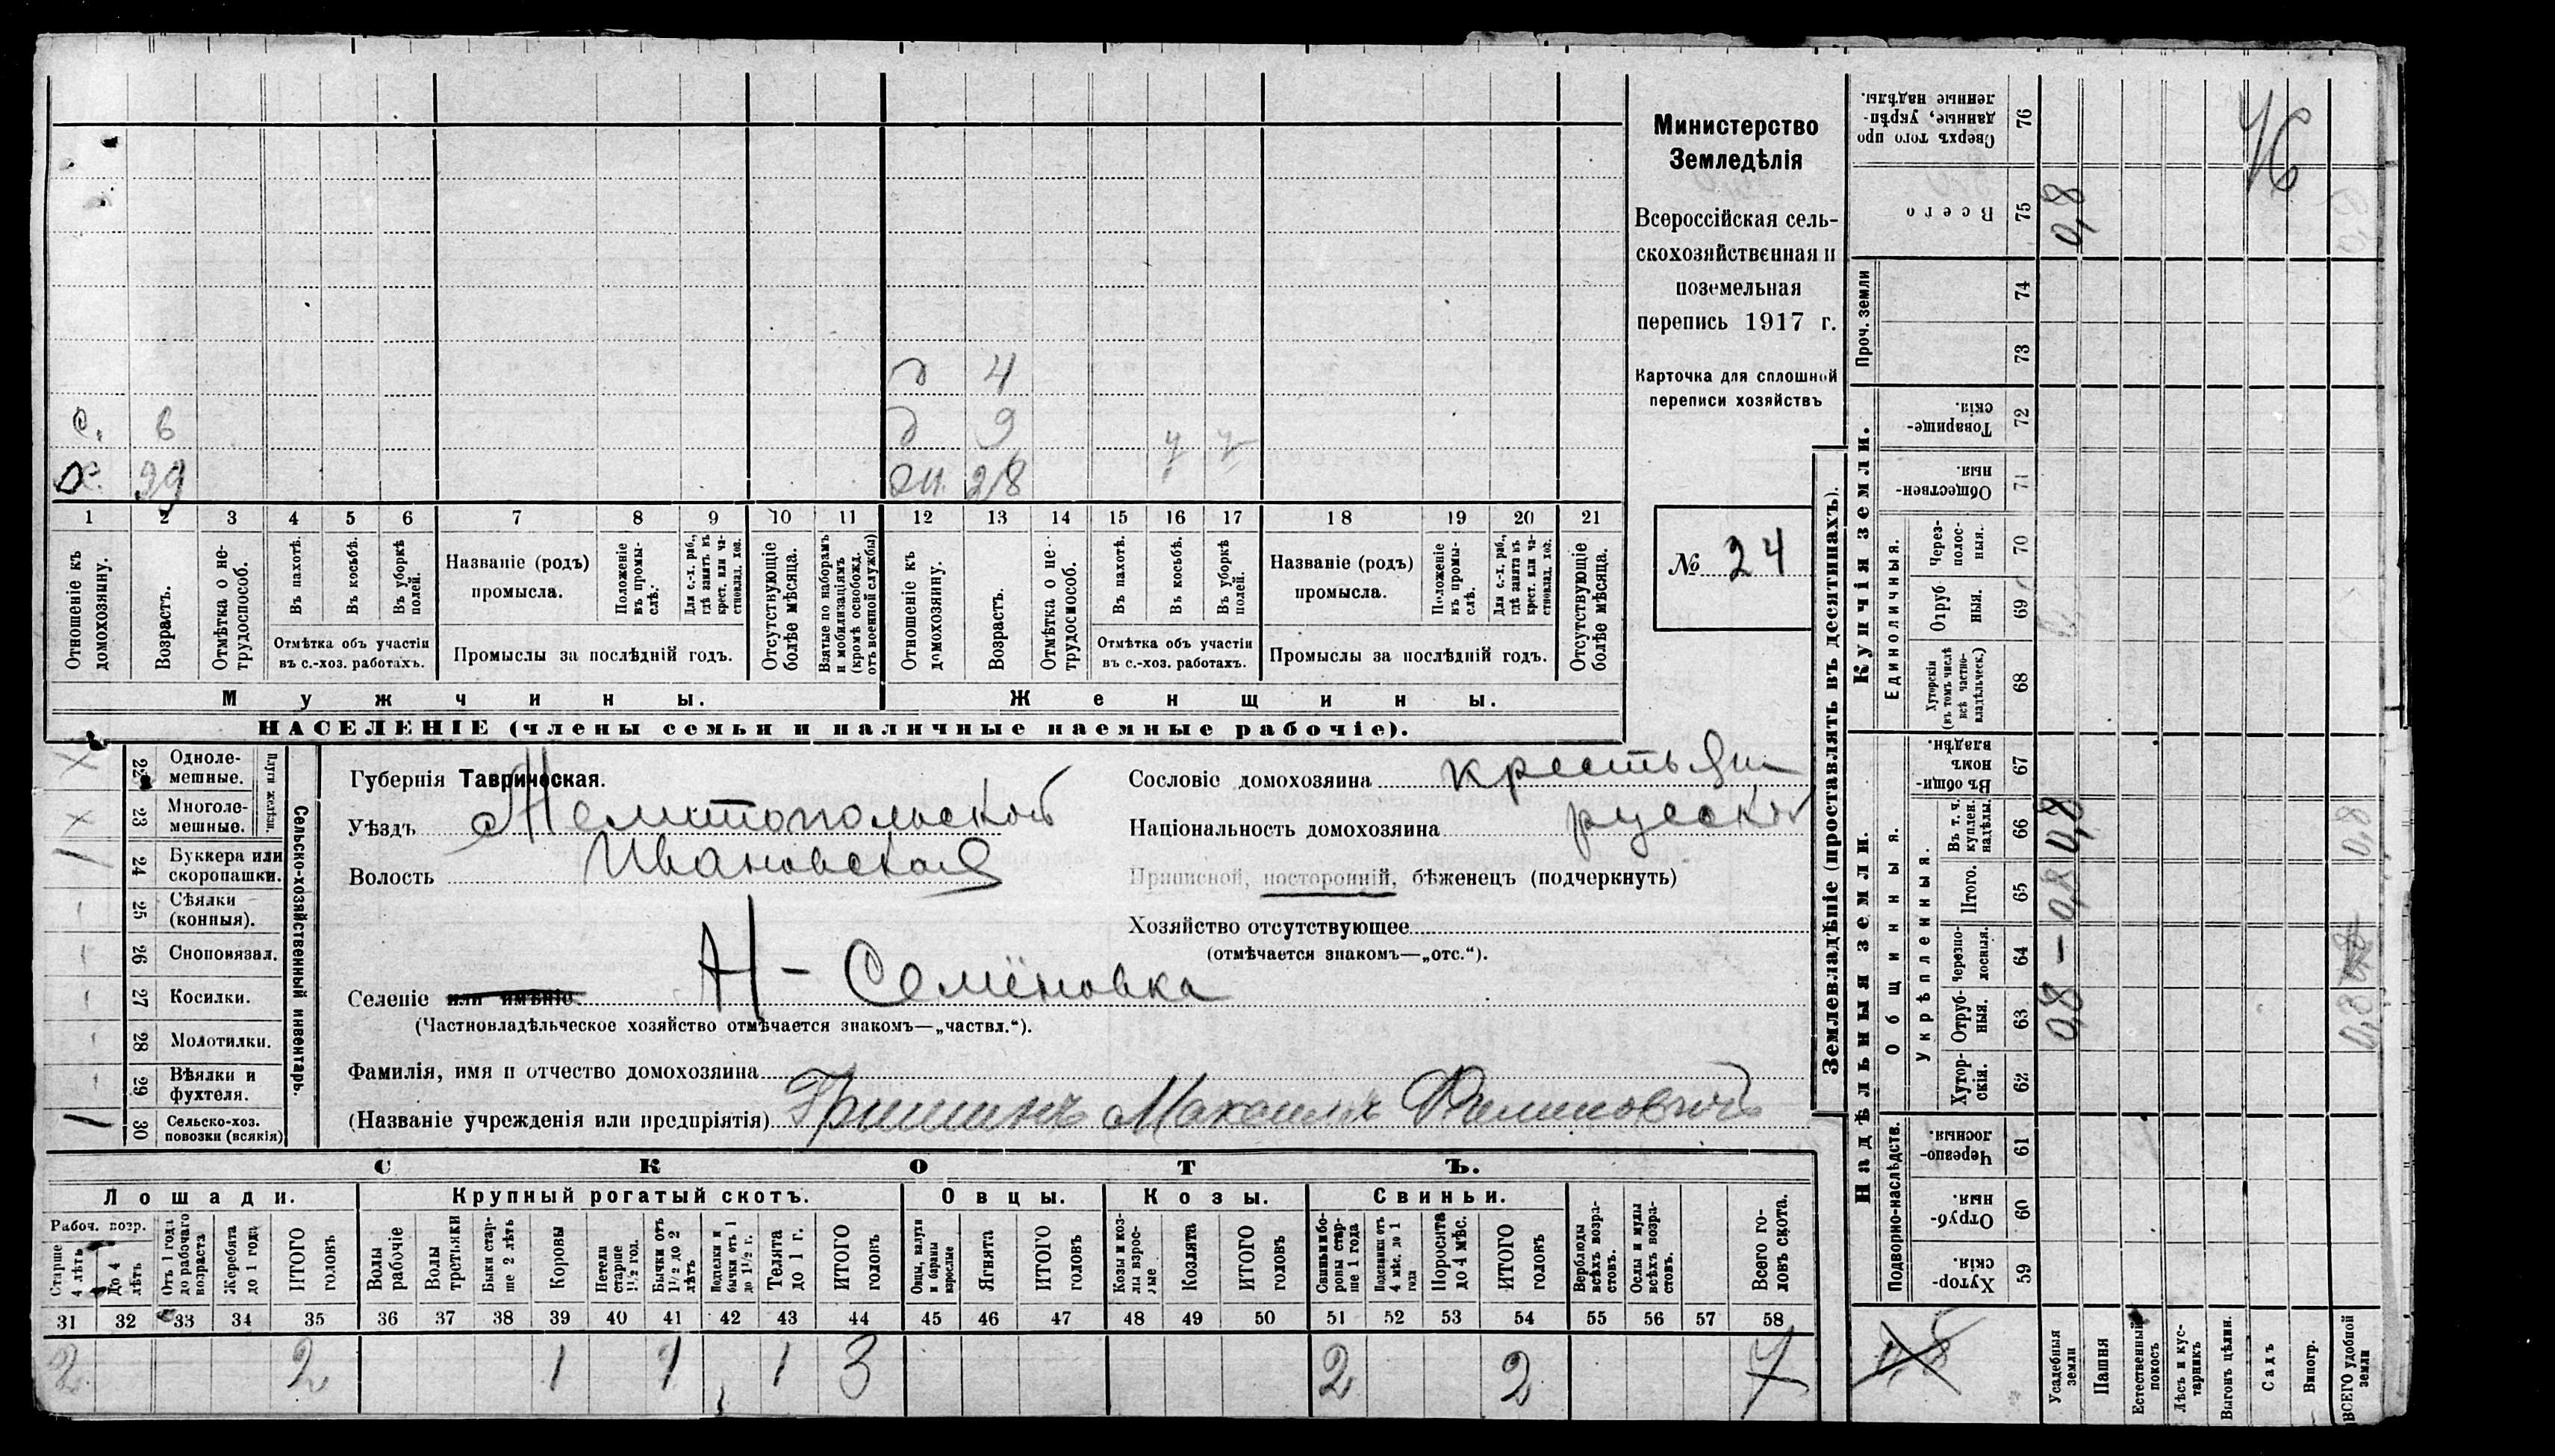 Министерство
Земледѣлія
Всероссійская сель-
скохозяйственная и
поземельная
перепись 1917 г.
Карточка для сплошной
переписи хозяйствъ
№ 24
д 4
с. 6 д 9
х. 29 ж. 28
1 2 3 4 5 6 7 8 9 10 11 12 13 14 15 16 17 18 19 20 21
Отношеніе къ домохозяину.
Возрастъ.
Отмѣтка о не-трудоспособ.
Въ пахотѣ.
Въ косьбѣ.
Въ уборкѣ полей.
Отмѣтка объ участіи
въ с.-хоз. работахъ.
Названіе (родъ)
промысла.
Положеніе въ промы-слѣ.
Для с.-х. раб., гдѣ занятъ въ крест. или ча-стновлад. хоз.
Промыслы за послѣдній годъ.
Отсутствующіе болѣе мѣсяца.
Взятые по наборамъ и мобилизаціямъ (кромѣ освобожд. отъ военной службы)
Отношеніе къ домохозяину.
Возрастъ.
Отмѣтка о не-трудоспособ.
Въ пахотѣ.
Въ косьбѣ.
Въ уборкѣ полей.
Отмѣтка объ участіи
въ с.-хоз. работахъ.
Названіе (родъ)
промысла.
Положеніе въ промы-слѣ.
Для с.-х. раб., гдѣ занята въ крест. или ча-стновлад. хоз.
Промыслы за послѣдній годъ.
Отсутствующіе болѣе мѣсяца.
Мужчины.
Женщины.
НАСЕЛЕНІЕ (члены семьи и наличные наемные рабочіе).
Сельско-хозяйственный инвентарь.
Плуги желѣзн.
22 Одноле-мешные.
23 Многоле-мешные.
24 Буккера или скоропашки.
25 Сѣялки (конныя).
26 Сноповязал.
27 Косилки.
28 Молотилки.
29 Вѣялки и фухтеля.
30 Сельско-хоз. повозки (всякія)
Губернія Таврическая.
Уѣздъ Мелитопольской
Волость Ивановская
Селеніе или имѣніе Н-Семёновка
(Частновладѣльческое хозяйство отмѣчается знакомъ—„частвл.“).
Фамилія, имя и отчество домохозяина
(Названіе учрежденія или предпріятія) Гришинъ Максимъ Филиповичъ
Сословіе домохозяина крестьян
Національность домохозяина русской
Приписной, посторонній, бѣженецъ (подчеркнуть)
Хозяйство отсутствующее
(отмѣчается знакомъ—„отс.“).
СКОТЪ.
Лошади. Крупный рогатый скотъ. Овцы. Козы. Свиньи.
Рабоч. возр.
Старше 4 лѣтъ
До 4 лѣтъ
Отъ 1 года до рабочаго возраста
Жеребята до 1 года
ИТОГО головъ
Волы рабочіе
Волы третьяки
Быки стар-ше 2 лѣтъ
Коровы
Нетели старше 1½ год.
Бычки отъ 1½ до 2 лѣтъ
Подтелки и бычки отъ 1 до 1½ г.
Телята до 1 г.
ИТОГО головъ
Овцы, валухи и бараны взрослые
Ягнята
ИТОГО головъ
Козы и коз-лы взрос-лые
Козлята
ИТОГО головъ
Свиньи и бо-ровы стар-ше 1 года
Подсвинки отъ 4 мѣс. до 1 года
Поросята до 4 мѣс.
ИТОГО головъ
Верблюды всѣхъ возра-стовъ.
Ослы и мулы всѣхъ возра-стовъ.
Всего го-ловъ скота.
31 32 33 34 35 36 37 38 39 40 41 42 43 44 45 46 47 48 49 50 51 52 53 54 55 56 57 58
2 2 1 1 1 3 2 2 7
Землевладѣніе (проставлять въ десятинахъ).
Надѣльныя земли.
Купчія земли.
Проч. земли
Подворно-наслѣдств.
Общинныя.
Укрѣпленныя.
Единоличныя.
Сверхъ того про данные, укрѣп-ленные надѣлы. 76
Всего 75 0,8
74
73
Товарище-скія. 72
Обществен-ныя. 71
Через-полос-ныя. 70
Отруб ныя. 69
Хуторскія (въ томъ числѣ всѣ частно-владѣльческ.) 68
Въ общин номъ владѣн. 67
Въ т. ч. куплен. надѣлы. 66 0,8
Итого. 65 0,8
Черезпо-лосная. 64 –
Отруб-ныя. 63 0,8
Хутор-скія. 62
Черезпо-лосныя. 61
Отруб-ныя. 60
Хутор-скія. 59
Усадебныя земли
Пашня
Естественный покосъ
Лѣсъ и кус-тарникъ
Выгонъ цѣлин.
Садъ
Виногр.
ВСЕГО удобной земли
0,8